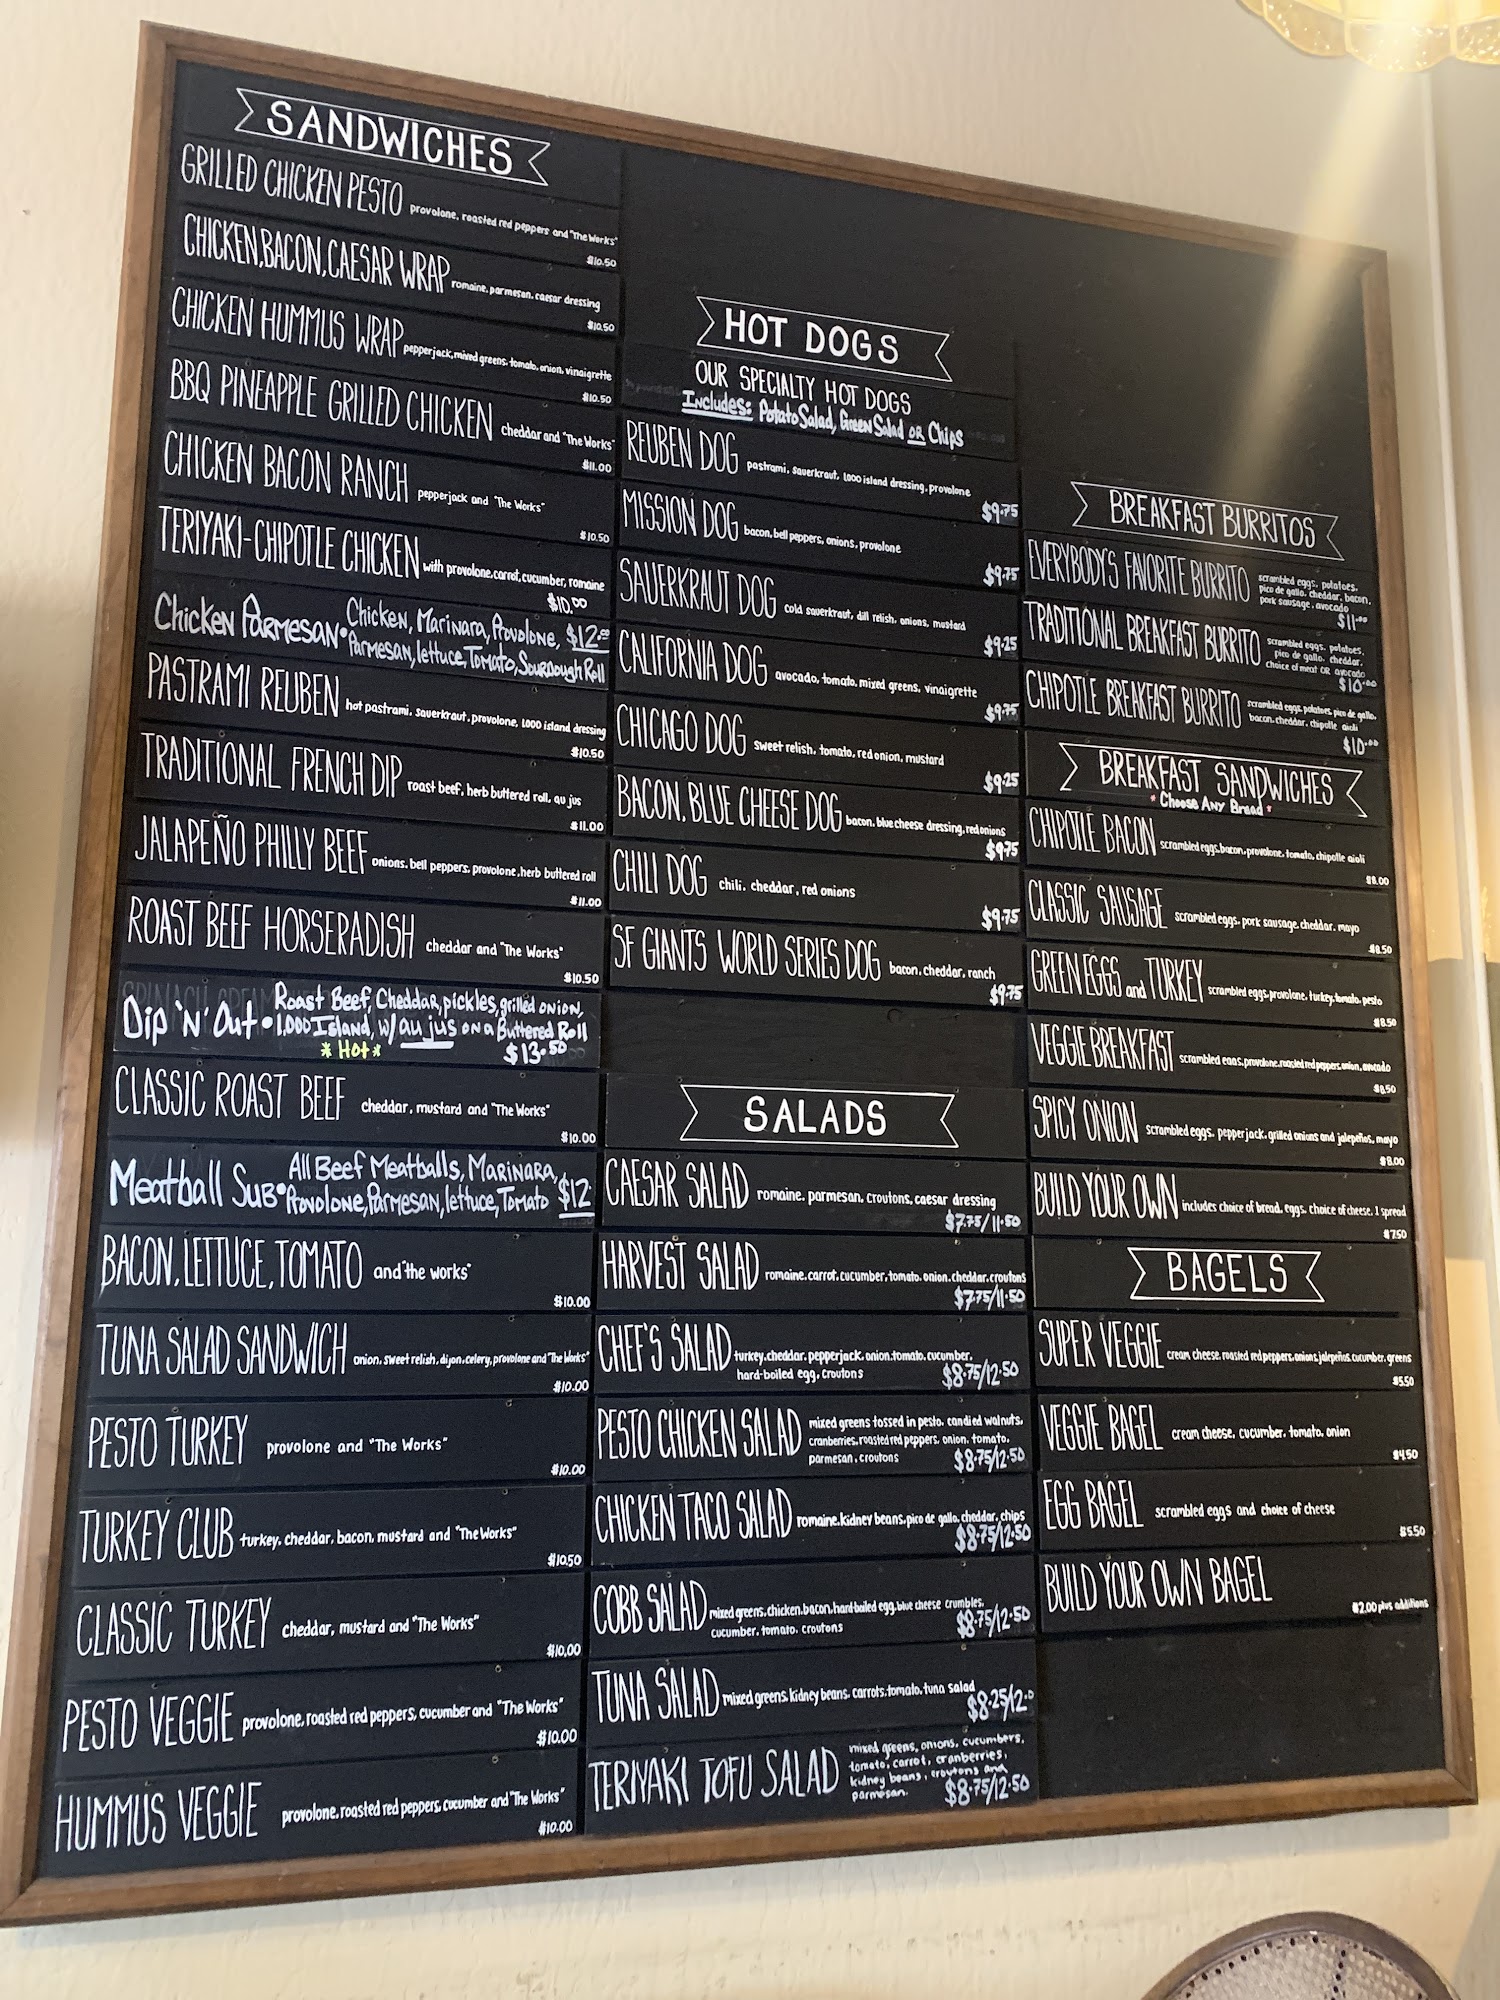 SANDWICHES
GRILLED CHICKEN PESTO provolone, roasted red peppers and "The Works"
$10.50
CHICKEN, BACON, CAESAR WRAP romaine, parmesan, caesar dressing
$10.50
CHICKEN HUMMUS WRAP pepperjack, mixed greens, tomato, onion, vinaigrette
$10.50
BBQ PINEAPPLE GRILLED CHICKEN cheddar and "The Works"
$11.00
CHICKEN BACON RANCH pepperjack and "The Works"
$10.50
TERIYAKI-CHIPOTLE CHICKEN with provolone, carrot, cucumber, romaine
$10.00
Chicken Parmesan • Chicken, Marinara, Provolone, $12.00
Parmesan, lettuce, Tomato, Sourdough Roll
PASTRAMI REUBEN hot pastrami, sauerkraut, provolone, 1000 island dressing
$10.50
TRADITIONAL FRENCH DIP roast beef, herb buttered roll, au jus
$11.00
JALAPEÑO PHILLY BEEF onions, bell peppers, provolone, herb buttered roll
$11.00
ROAST BEEF HORSERADISH cheddar and "The Works"
$10.50
Dip 'N' Out • Roast Beef, Cheddar, pickles, grilled onion,
1,000 Island, w/ au jus on a Buttered Roll
* Hot * $13.50
CLASSIC ROAST BEEF cheddar, mustard and "The Works"
$10.00
Meatball Sub • All Beef Meatballs, Marinara,
Provolone, Parmesan, lettuce, Tomato $12
BACON, LETTUCE, TOMATO and "the works"
$10.00
TUNA SALAD SANDWICH onion, sweet relish, dijon, celery, provolone and "The Works"
$10.00
PESTO TURKEY provolone and "The Works"
$10.00
TURKEY CLUB turkey, cheddar, bacon, mustard and "The Works"
$10.50
CLASSIC TURKEY cheddar, mustard and "The Works"
$10.00
PESTO VEGGIE provolone, roasted red peppers, cucumber and "The Works"
$10.00
HUMMUS VEGGIE provolone, roasted red peppers, cucumber and "The Works"
$10.00
HOT DOGS
OUR SPECIALTY HOT DOGS
Includes: Potato Salad, Green Salad OR Chips
REUBEN DOG pastrami, sauerkraut, 1000 island dressing, provolone
$9.75
MISSION DOG bacon, bell peppers, onions, provolone
$9.75
SAUERKRAUT DOG cold sauerkraut, dill relish, onions, mustard
$9.25
CALIFORNIA DOG avocado, tomato, mixed greens, vinaigrette
$9.75
CHICAGO DOG sweet relish, tomato, red onion, mustard
$9.25
BACON, BLUE CHEESE DOG bacon, blue cheese dressing, red onions
$9.75
CHILI DOG chili, cheddar, red onions
$9.75
SF GIANTS WORLD SERIES DOG bacon, cheddar, ranch
$9.75
SALADS
CAESAR SALAD romaine, parmesan, croutons, caesar dressing
$7.75/11.50
HARVEST SALAD romaine, carrot, cucumber, tomato, onion, cheddar, croutons
$7.75/11.50
CHEF'S SALAD turkey, cheddar, pepperjack, onion, tomato, cucumber,
hard-boiled egg, croutons $8.75/12.50
PESTO CHICKEN SALAD mixed greens tossed in pesto, candied walnuts,
cranberries, roasted red peppers, onion, tomato,
parmesan, croutons $8.75/12.50
CHICKEN TACO SALAD romaine, kidney beans, pico de gallo, cheddar, chips
$8.75/12.50
COBB SALAD mixed greens, chicken, bacon, hard-boiled egg, blue cheese crumbles,
cucumber, tomato, croutons $8.75/12.50
TUNA SALAD mixed greens, kidney beans, carrots, tomato, tuna salad
$8.25/12.0
TERIYAKI TOFU SALAD mixed greens, onions, cucumbers,
tomato, carrot, cranberries,
kidney beans, croutons and
parmesan. $8.75/12.50
BREAKFAST BURRITOS
EVERYBODY'S FAVORITE BURRITO scrambled eggs, potatoes,
pico de gallo, cheddar, bacon,
pork sausage, avocado
$11.00
TRADITIONAL BREAKFAST BURRITO scrambled eggs, potatoes,
pico de gallo, cheddar,
choice of meat OR avocado
$10.00
CHIPOTLE BREAKFAST BURRITO scrambled eggs, potatoes, pico de gallo,
bacon, cheddar, chipotle aioli
$10.00
BREAKFAST SANDWICHES
* Choose Any Bread *
CHIPOTLE BACON scrambled eggs, bacon, provolone, tomato, chipotle aioli
$8.00
CLASSIC SAUSAGE scrambled eggs, pork sausage, cheddar, mayo
$8.50
GREEN EGGS and TURKEY scrambled eggs, provolone, turkey, tomato, pesto
$8.50
VEGGIE BREAKFAST scrambled eggs, provolone, roasted red peppers, onion, avocado
$8.50
SPICY ONION scrambled eggs, pepperjack, grilled onions and jalepeños, mayo
$8.00
BUILD YOUR OWN includes choice of bread, eggs, choice of cheese, 1 spread
$7.50
BAGELS
SUPER VEGGIE cream cheese, roasted red peppers, onions, jalepeños, cucumber, greens
$5.50
VEGGIE BAGEL cream cheese, cucumber, tomato, onion
$4.50
EGG BAGEL scrambled eggs and choice of cheese
$5.50
BUILD YOUR OWN BAGEL
$2.00 plus additions